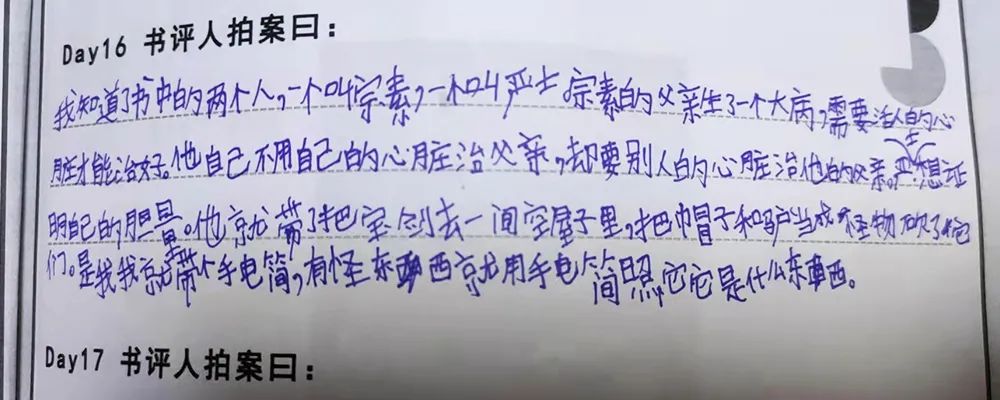 Day16 书评人拍案曰：
我知道了书中的两个人，一个叫宗素，一个叫严士。宗素的父亲生了一个大病，需要活人的心
脏才能治好。他自己不用自己的心脏治父亲，却要别人的心脏治他的父亲。严士想证
明自己的胆量。他就带了把宝剑去一间空屋子里，把巾帽子和驴当成怪物砍了它
们。是我我就带个手电筒，有怪东西就用手电筒照它它是什么东西。
Day17 书评人拍案曰：